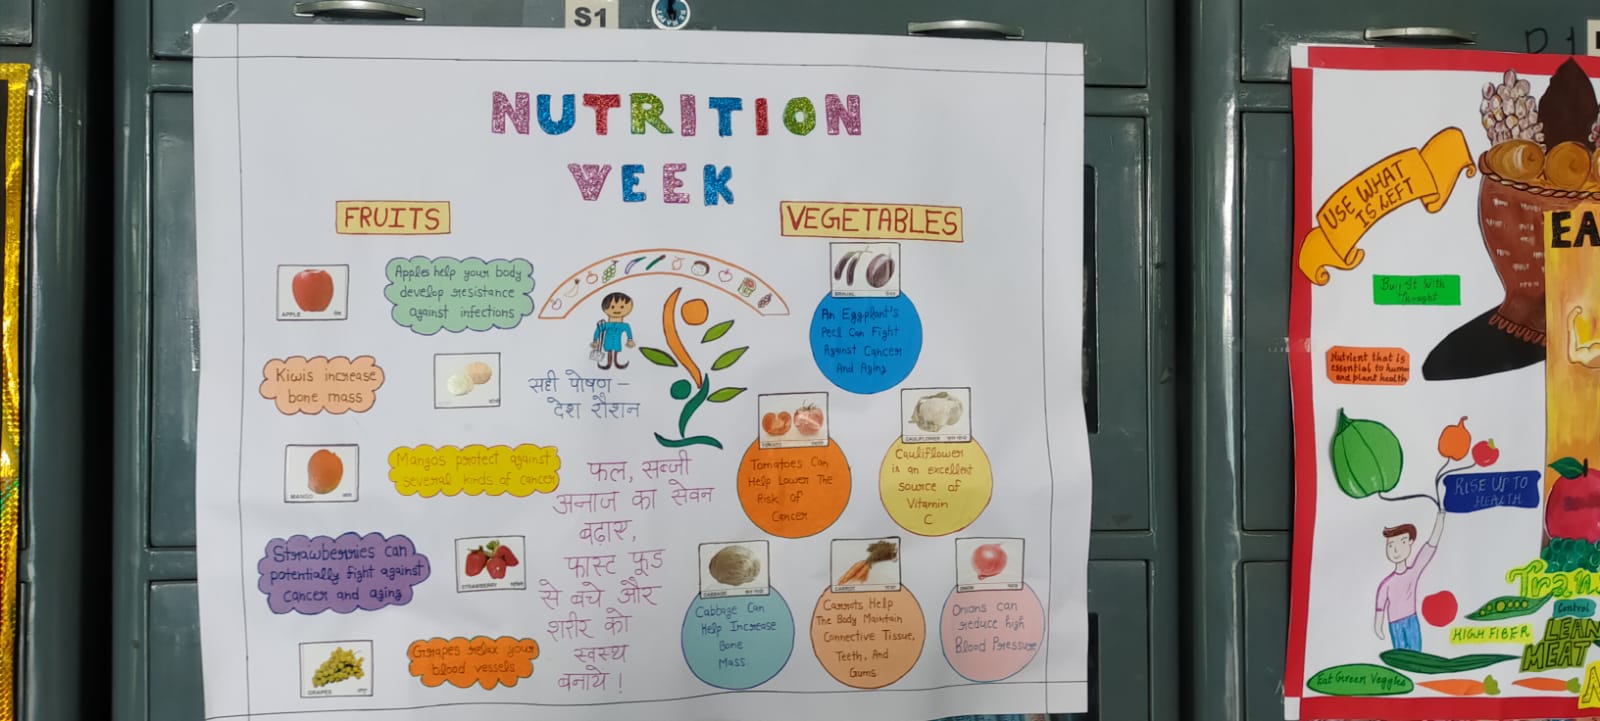 S1
NUTRITION
WEEK
FRUITS
VEGETABLES
APPLE
Apples help your body
develop resistance
against infections
Kiwis increase
bone mass
MANGO
Mangos protect against
several kinds of cancer
Strawberries can
potentially fight against
cancer and aging
STRAWBERRY
GRAPES
Grapes relax your
blood vessels
सही पोषण –
देश रोशन
फल, सब्जी
अनाज का सेवन
बढ़ाए,
फास्ट फूड
से बचे और
शरीर को
स्वस्थ
बनाये !
BRINJAL
An Eggplant's
Peel Can Fight
Against Cancer
And Aging
TOMATO
Tomatoes Can
Help Lower The
Risk of
Cancer
CAULIFLOWER
Cauliflower
is an excellent
source of
Vitamin
C
CABBAGE
Cabbage Can
Help Increase
Bone
Mass
CARROT
Carrots Help
The Body Maintain
Connective Tissue,
Teeth, And
Gums
ONION
Onions can
reduce high
Blood Pressure
USE WHAT
IS LEFT
EA
Buy It With
Thought
Nutrient that is
essential to human
and plant health
RISE UP TO
HEALTH
Tran
Control
HIGH FIBER
LEAN
MEAT
Eat Green Veggies